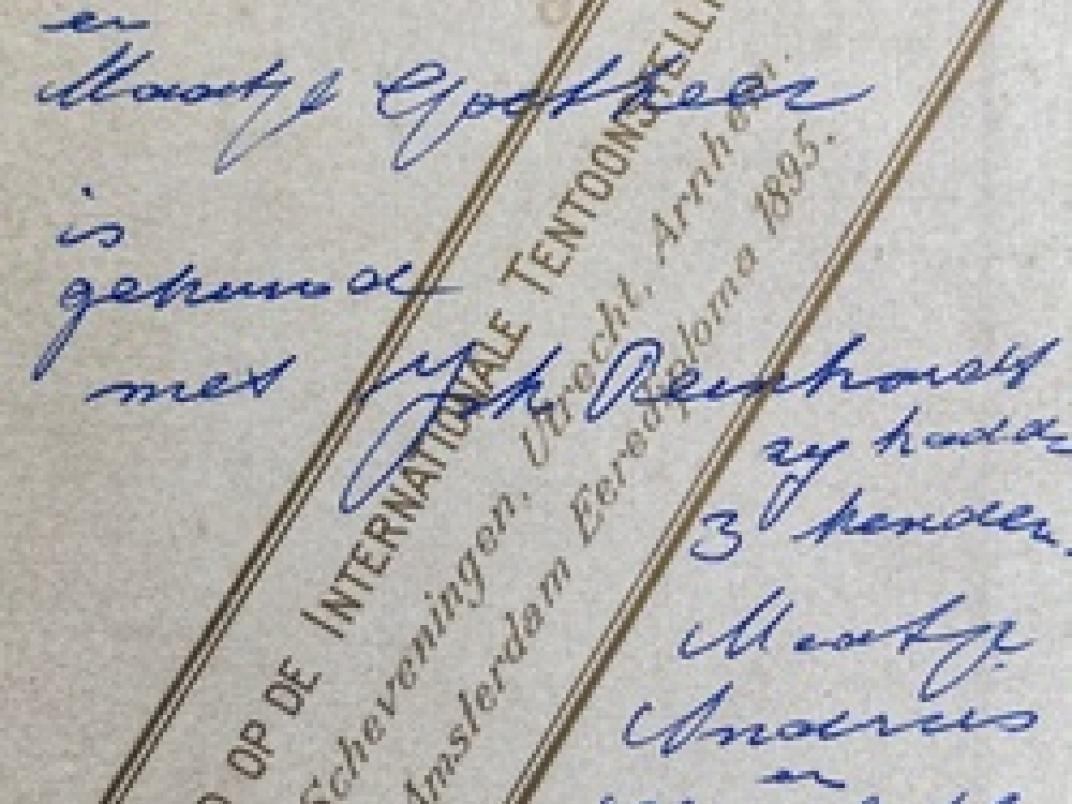 en
Maatje Goetheer
is
gehuwd
met
zy hadde
3 kenderen.
Maatje
Andries
en
OP DE INTERNATIONALE TENTOONSTELLI
Scheveningen, Utrecht, Arnhem.
Amsterdam Eerediploma 1895.